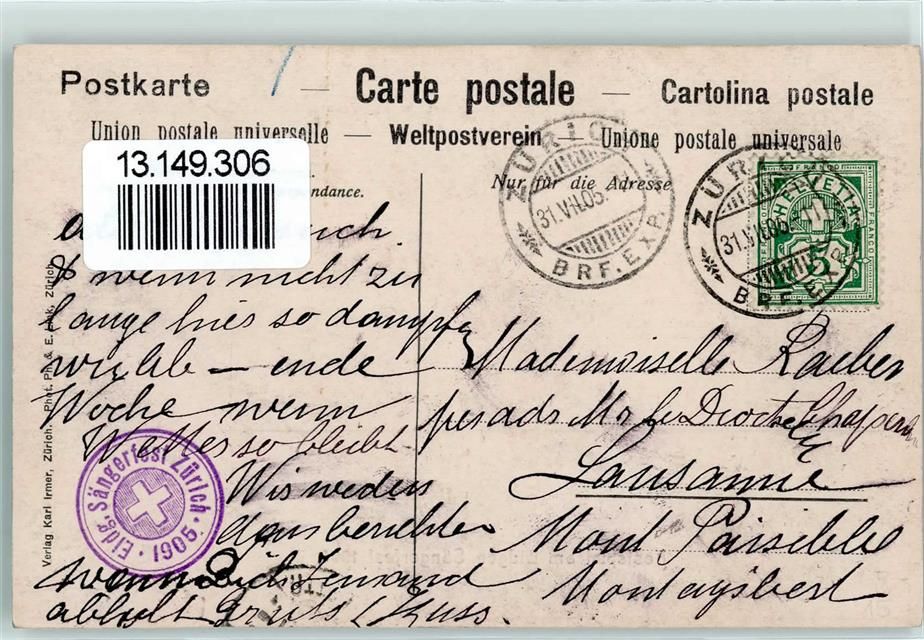 Postkarte — Carte postale — Cartolina postale
Union postale universelle — Weltpostverein — Unione postale universale
13.149.306
ndance.
Nur für die Adresse
ZÜRICH
31.VII.05.
BRF. EXP.
ZÜRICH
31.VII.05.
BRF. EXP.
FRANCO
HELVETIA
FRANCO
5
wenn nicht zu
lange hier so dampfe
ich ab — ende
Woche wenn
Wetter so bleibt.
Wir werden
dann berichten
wenn Dich Jemand
abholt Gruss Kuss.
Mademoiselle Raeber
Lausanne
Mont Paisible
Verlag Karl Irmer, Zürich. Phot. Ph. & E. Link, Zürich
Eidg. Sängerfest Zürich · 1905 ·